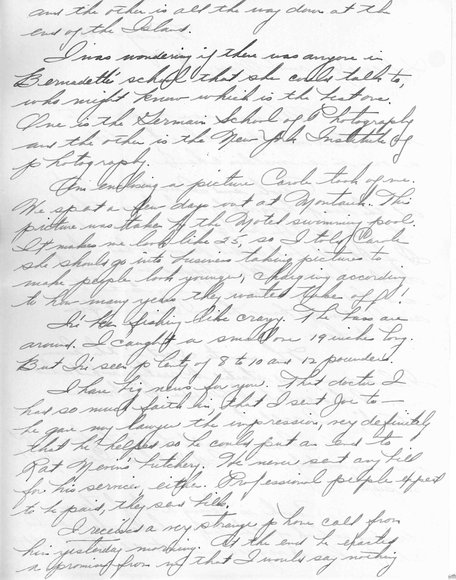 and the other is all the way down at the
end of the Island.
I was wondering if there was anyone in
Bernadette's school that she could talk to,
who might know which is the best one.
One is the Germain School of Photography
and the other is the New York Institute of
photography.
I'm enclosing a picture Carole took of me.
We spent a few days out at Montauk. This
picture was taken by the Motel swimming pool.
It makes me look like 35, so I told Carole
she should go into business taking pictures to
make people look younger, charging according
to how many years they wanted taken off!
I've been fishing like crazy. The bass are
around. I caught a small one 19 inches long.
But I've seen plenty of 8 to 10 and 12 pounders.
I have big news for you. That doctor I
had so much faith in, that I sent Joe to —
he gave my lawyer the impression, very definitely
that he helped so he could put an end to
butchery. He never sent any bill
for his services, either. Professional people expect
to be paid, they send bills.
I received a very strange phone call from
him yesterday morning. At the end he
a promise from me that I would say nothing